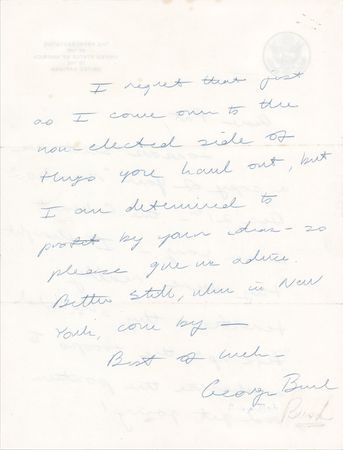 I regret that just
as I come over to the
non-elected side of
things you haul out, but
I am determined to
profit by your ideas — so
please give us advice.
Better still, when in New
York, come by —
Best of luck —
George Bush
Bush